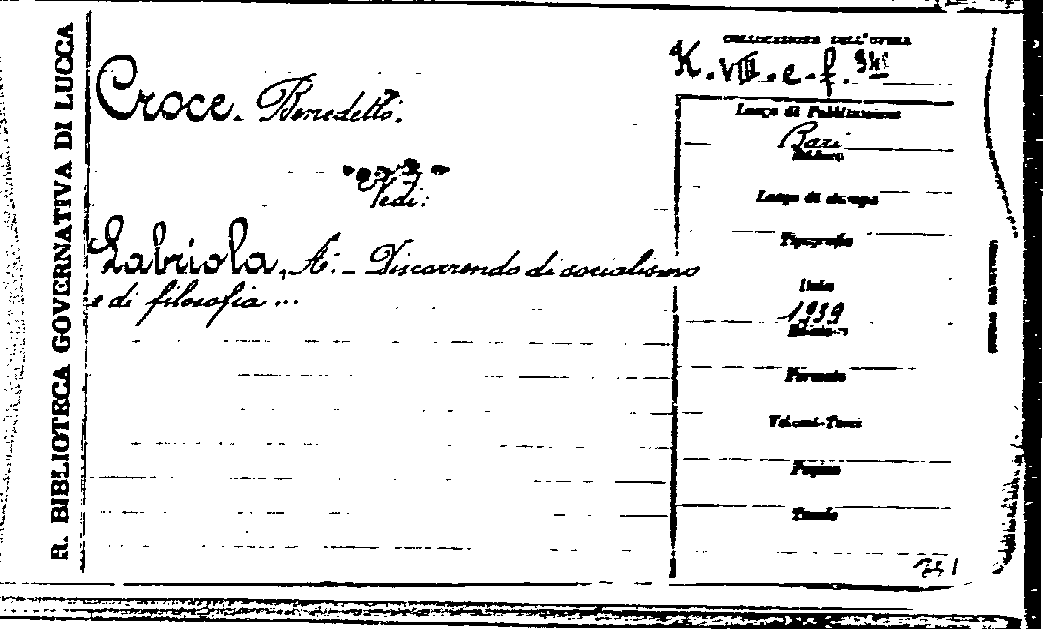 R. BIBLIOTECA GOVERNATIVA DI LUCCA
COLLOCAZIONE DELL'OPERA
K. VIII. e-f.
Croce. Benedetto.
Vedi:
Labriola, A. - Discorrendo di socialismo
e di filosofia ...
Luogo di Pubblicazione
Bari
Editore
Luogo di stampa
Tipografo
Data
1939
Edizione
Formato
Volumi-Tomi
Pagine
Tavole